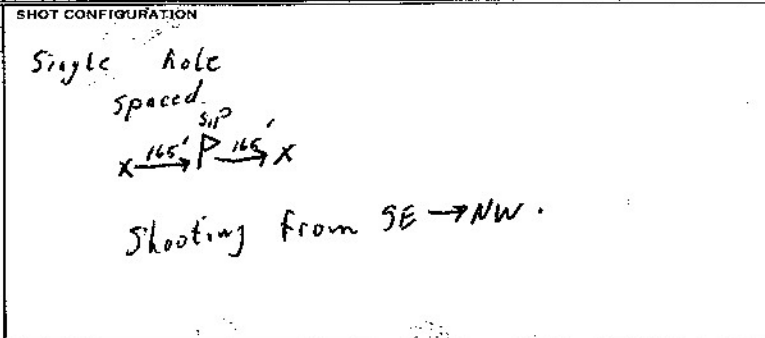 SHOT CONFIGURATION
Single hole
spaced
S.P
X 165' → P 165' → X
Shooting from SE → NW.